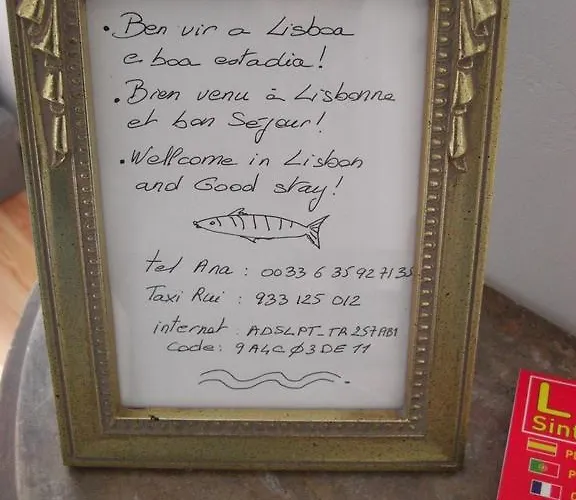 • Ben vir a Lisboa
e boa estadia!
• Bien venu à Lisbonne
et bon Séjour!
• Wellcome in Lisbon
and Good stay!
tel Ana : 0033 6 35 92 71 35
Taxi Rui : 933 125 012
internet : ADSLPT_TR257AB1
Code : 9A4CØ3DE11
L
Sint
P
P
F